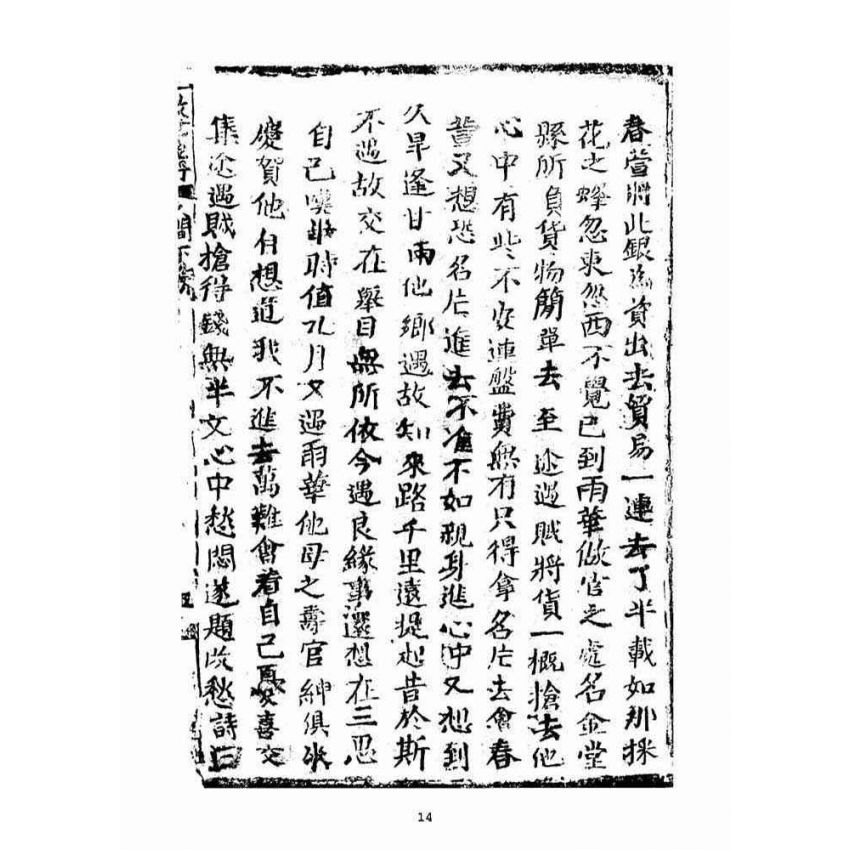 春萱將此銀為資出去貿易一連去了半載如那採
花之蜂忽東忽西不覺已到雨華做官之處名金堂
縣所負貨物簡單去至途遇賊將貨一概搶去他
心中有些不安連盤費無有只得拿名片去會春
萱又想恐名片進去不准不如親身進心中又想到
久旱逢甘雨他鄉遇故知來路千里遠提起昔於斯
不遇故交在舉目無所依今遇良緣事還想在三思
自己嘆 時值九月又遇雨華他母之壽官紳俱來
慶賀他自想道我不進去萬難會着自己憂喜交
集途遇賊搶待錢無半文心中愁悶遂題改愁詩曰
14